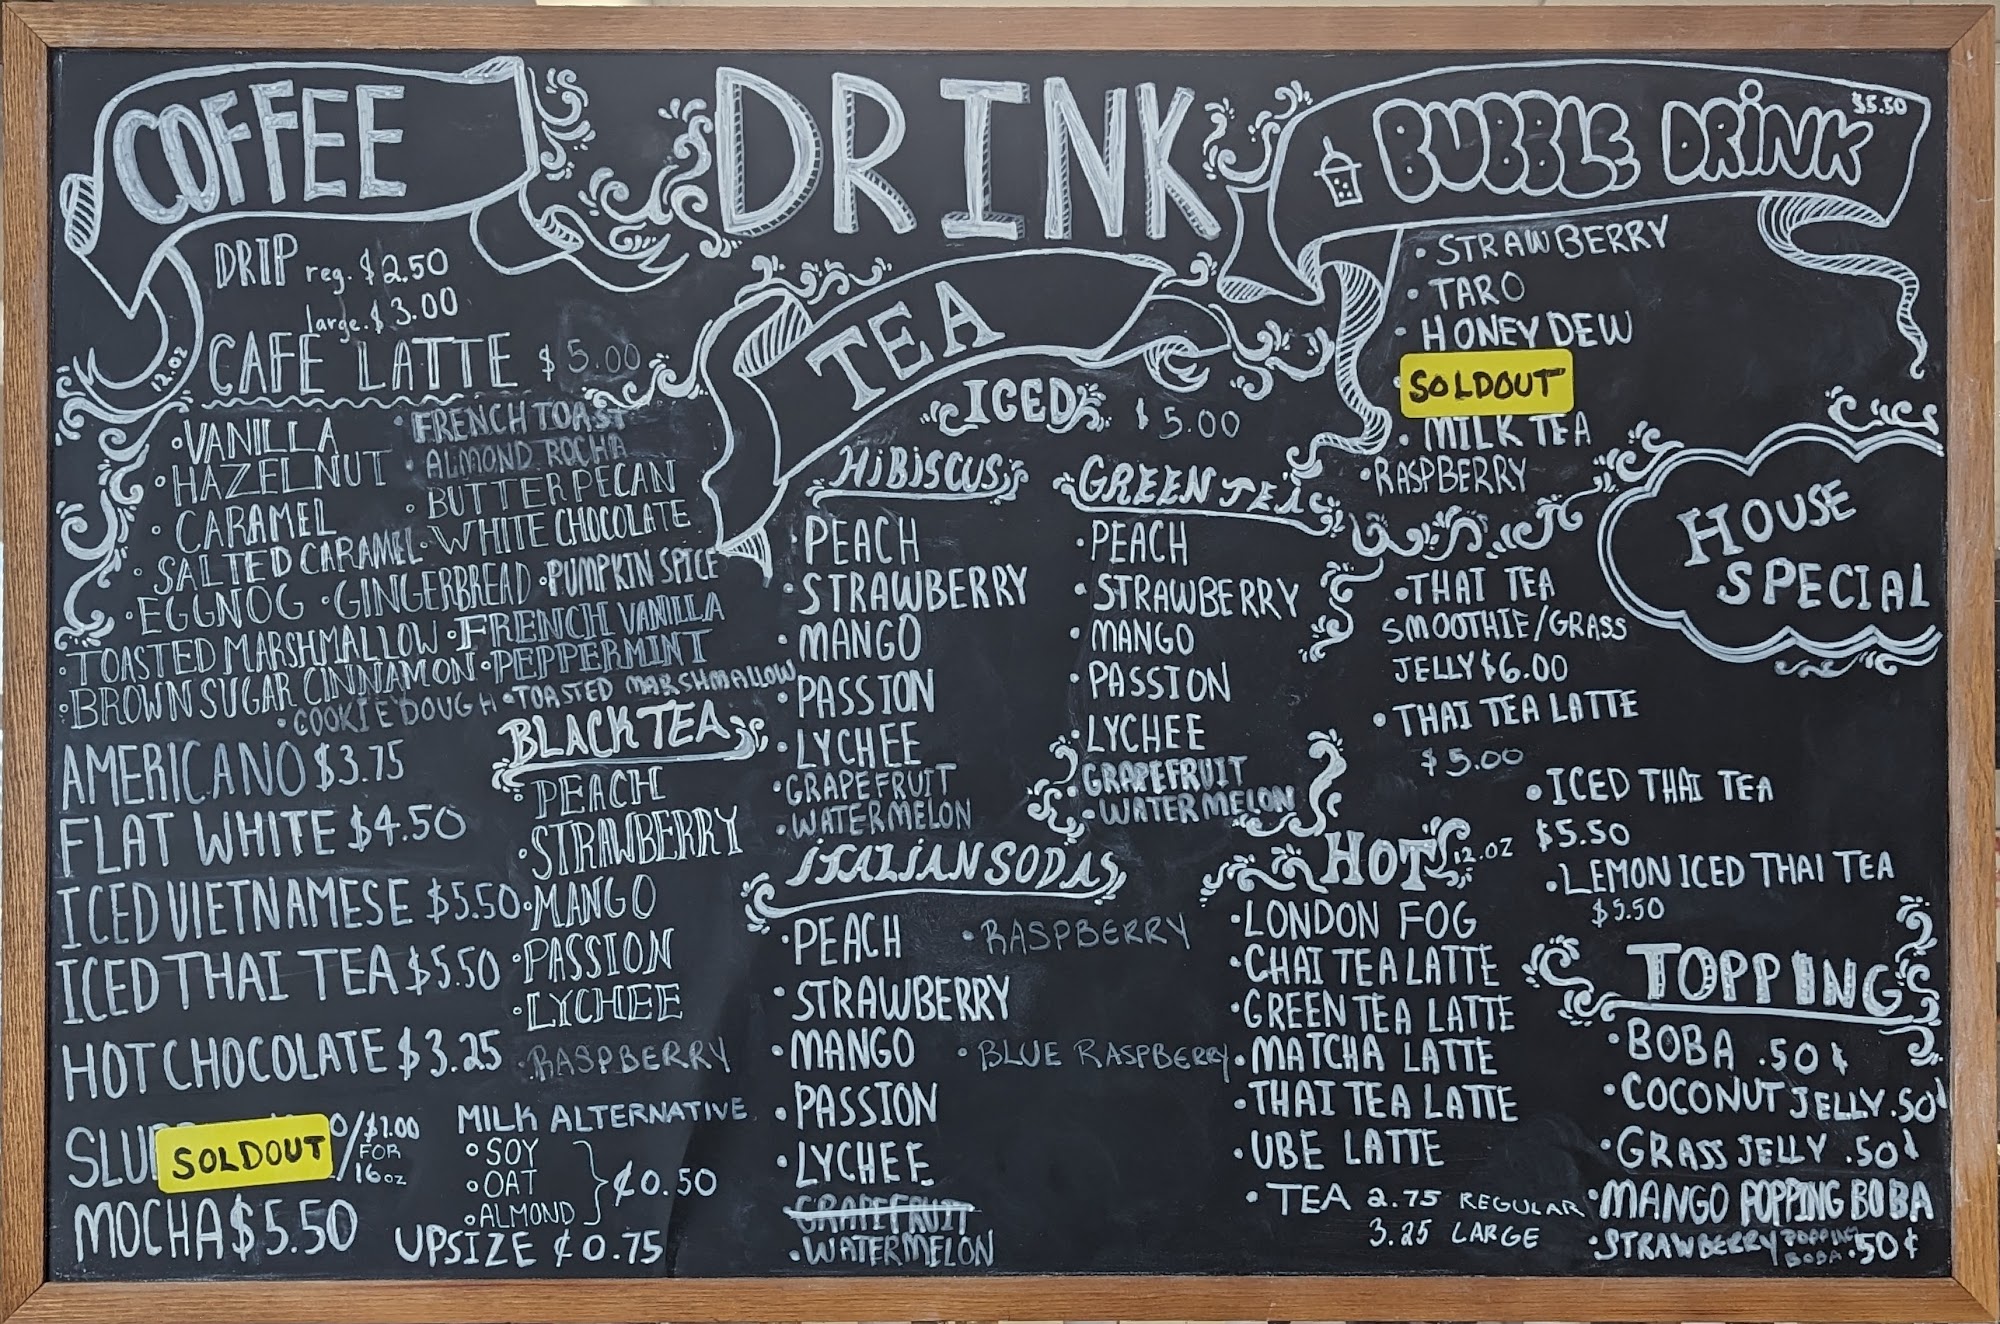 COFFEE
DRIP reg. $2.50
large. $3.00
12.oz
CAFE LATTE $5.00
• VANILLA • FRENCH TOAST
• HAZELNUT • ALMOND ROCHA
• CARAMEL • BUTTER PECAN
• SALTED CARAMEL • WHITE CHOCOLATE
• EGGNOG • GINGERBREAD • PUMPKIN SPICE
• TOASTED MARSHMALLOW • FRENCH VANILLA
• BROWN SUGAR CINNAMON • PEPPERMINT
• COOKIE DOUGH • TOASTED MARSHMALLOW
AMERICANO $3.75
FLAT WHITE $4.50
ICED VIETNAMESE $5.50
ICED THAI TEA $5.50
HOT CHOCOLATE $3.25
SOLDOUT
/$1.00
FOR
16oz
MOCHA $5.50
BLACK TEA
• PEACH
• STRAWBERRY
• MANGO
• PASSION
• LYCHEE
• RASPBERRY
MILK ALTERNATIVE
• SOY
• OAT
• ALMOND
¢0.50
UPSIZE ¢0.75
DRINK
TEA
ICED $5.00
HiBiSCUS
• PEACH
• STRAWBERRY
• MANGO
• PASSION
• LYCHEE
• GRAPEFRUIT
• WATERMELON
GREEN TEA
• PEACH
• STRAWBERRY
• MANGO
• PASSION
• LYCHEE
• GRAPEFRUIT
• WATERMELON
iTALIAN SODAS
• PEACH • RASPBERRY
• STRAWBERRY
• MANGO • BLUE RASPBERRY
• PASSION
• LYCHEE
GRAPEFRUIT
• WATERMELON
HOT 12.OZ
• LONDON FOG
• CHAI TEA LATTE
• GREEN TEA LATTE
• MATCHA LATTE
• THAI TEA LATTE
• UBE LATTE
• TEA 2.75 REGULAR
3.25 LARGE
BUBBLE DRiNK $5.50
• STRAWBERRY
• TARO
• HONEY DEW
SOLDOUT
• MILK TEA
• RASPBERRY
HOUSE
SPECIAL
• THAI TEA
SMOOTHIE/GRASS
JELLY $6.00
• THAI TEA LATTE
$5.00
• ICED THAI TEA
$5.50
• LEMON ICED THAI TEA
$5.50
TOPPING
• BOBA .50¢
• COCONUT JELLY .50¢
• GRASS JELLY .50¢
• MANGO POPPING BOBA
• STRAWBERRY POPPING BOBA .50¢